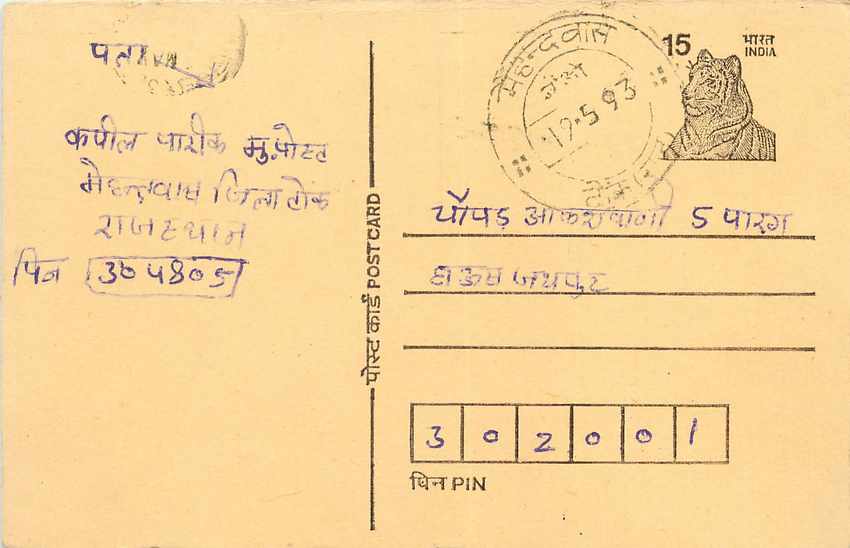 पता
कपील पारीक मु.पोस्ट
मेहन्दवास जिला टोंक
राजस्थान
पिन 304805
पोस्ट कार्ड POST CARD
मेहन्दवास
12.5.93
15
भारत
INDIA
चौपड़ आकाशवाणी 5 पारग
हाऊस जयपुर
302001
पिन PIN